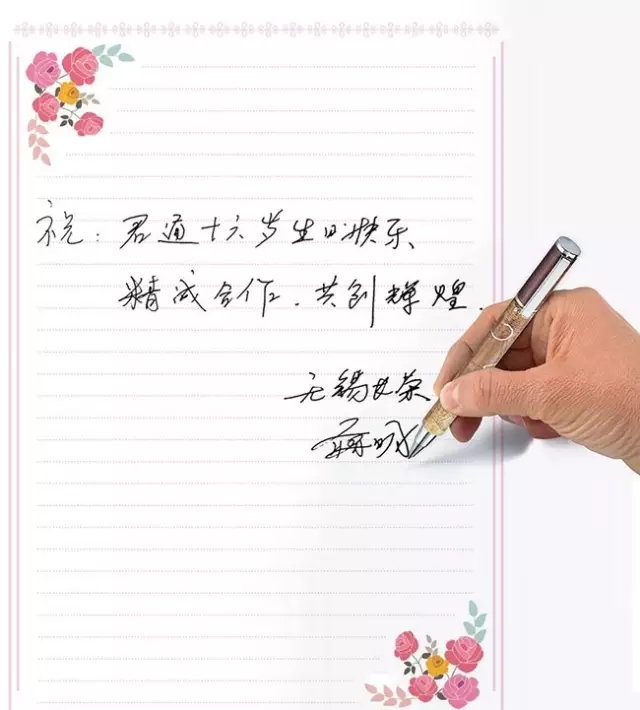 祝：君通十六岁生日快乐、
精成合作．共创辉煌．
无锡长荣